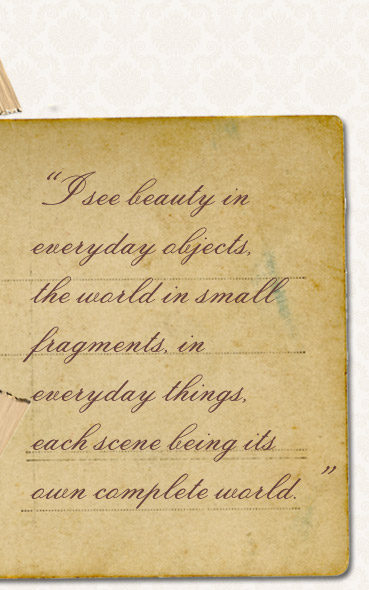 “I see beauty in
everyday objects,
the world in small
fragments, in
everyday things,
each scene being its
own complete world.”